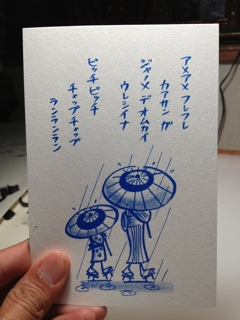 アメアメ フレフレ
カアサン ガ
ジャノメ デ オムカイ
ウレシイナ
ピッチ ピッチ
チャップ チャップ
ランランラン